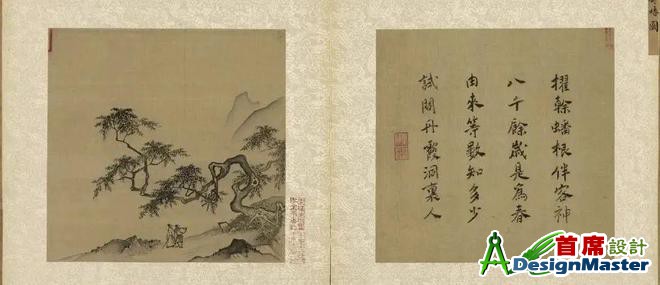 圖
擢榦蟠根伴神
八千餘歲是為春
由來等數知多少
試問丹霞洞裏人
首席設計
ADesignMaster